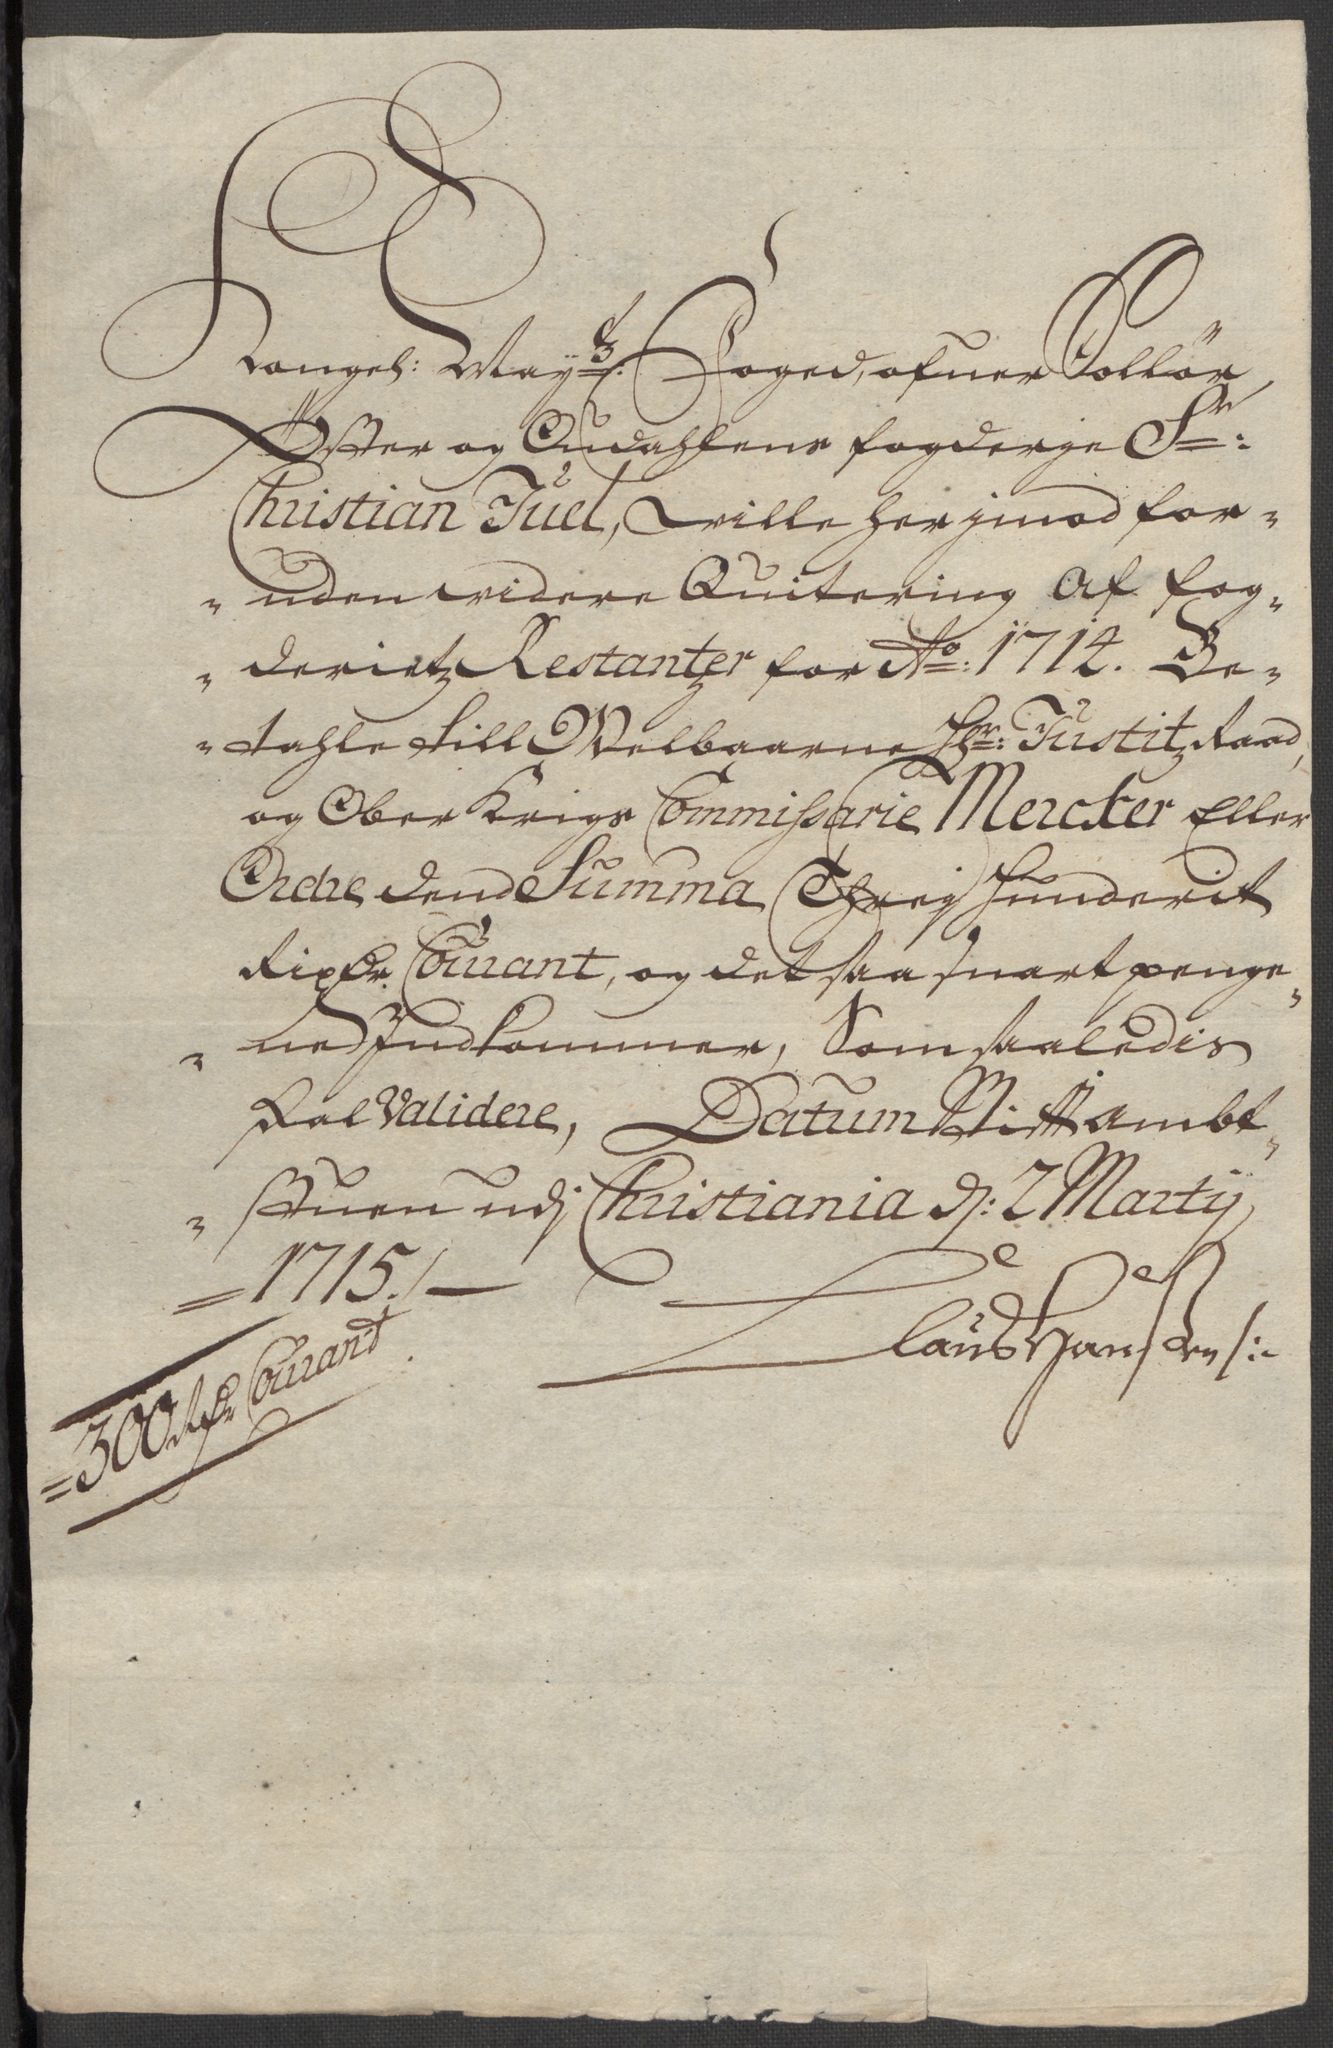 Kongel: May:tz Foged, ofuer Sollør
Øster og Oudahlens fogderje Sr:
Christian Juel, wille her jmod for-
- uden widere Quitering af fog-
- derietz Restantzer for Ao: 1714. Be-
- tahle till Welbaarne Hr: Justitz Raad,
og Ober Krigs Commissarie Mercker Eller
Ordre dend Summa Threj hunderit
Rixdr. Courant, og det saa snart penge-
- ne Indkommer, Som saaledis
skal Validere, Datum Stifft ambt-
- stuen udj Christiania dj: 2 Martij
= 1715 ./ -
Claus Hansen /:
= 300 Rdr Courant